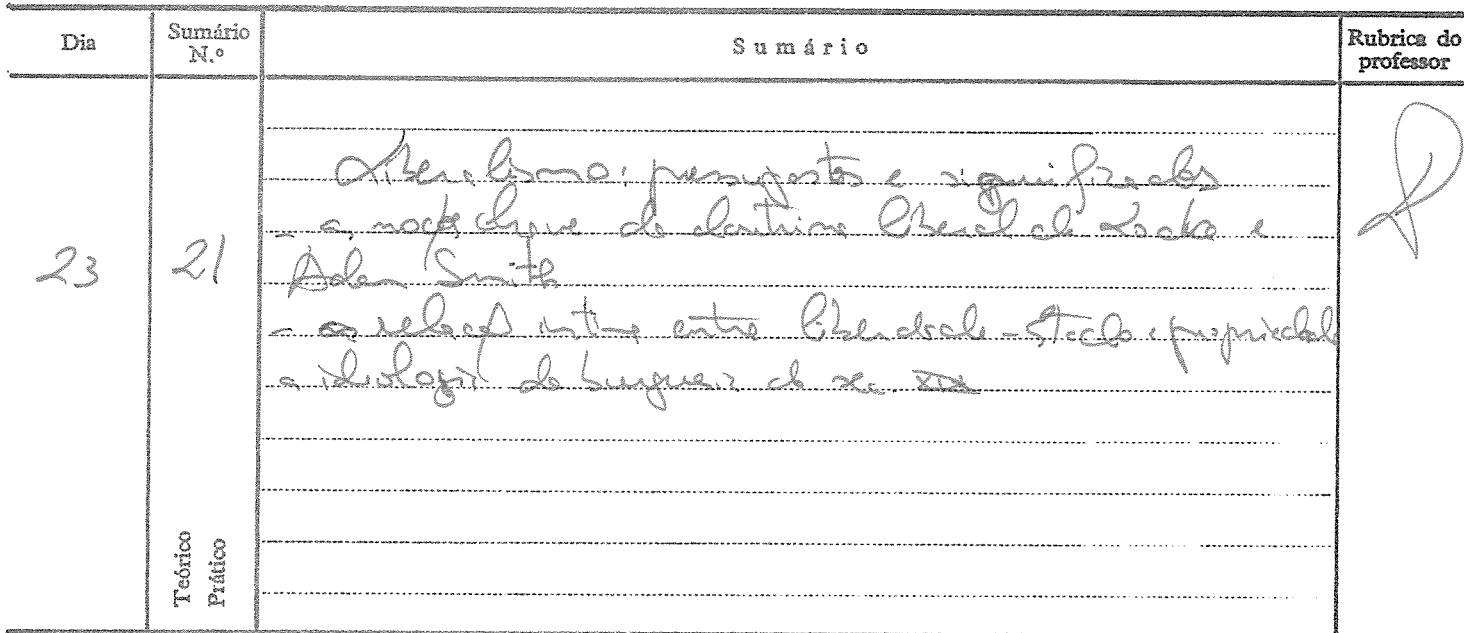 Dia
Sumário N.º
Sumário
Rubrica do professor
23
21
Liberalismo: pressupostos e significados
- a noção chave da doutrina liberal de Locke e
Adam Smith
- as relações íntima entre liberdade - Estado e propriedade
a ideologia da burguesia do sec. XIX
Teórico
Prático